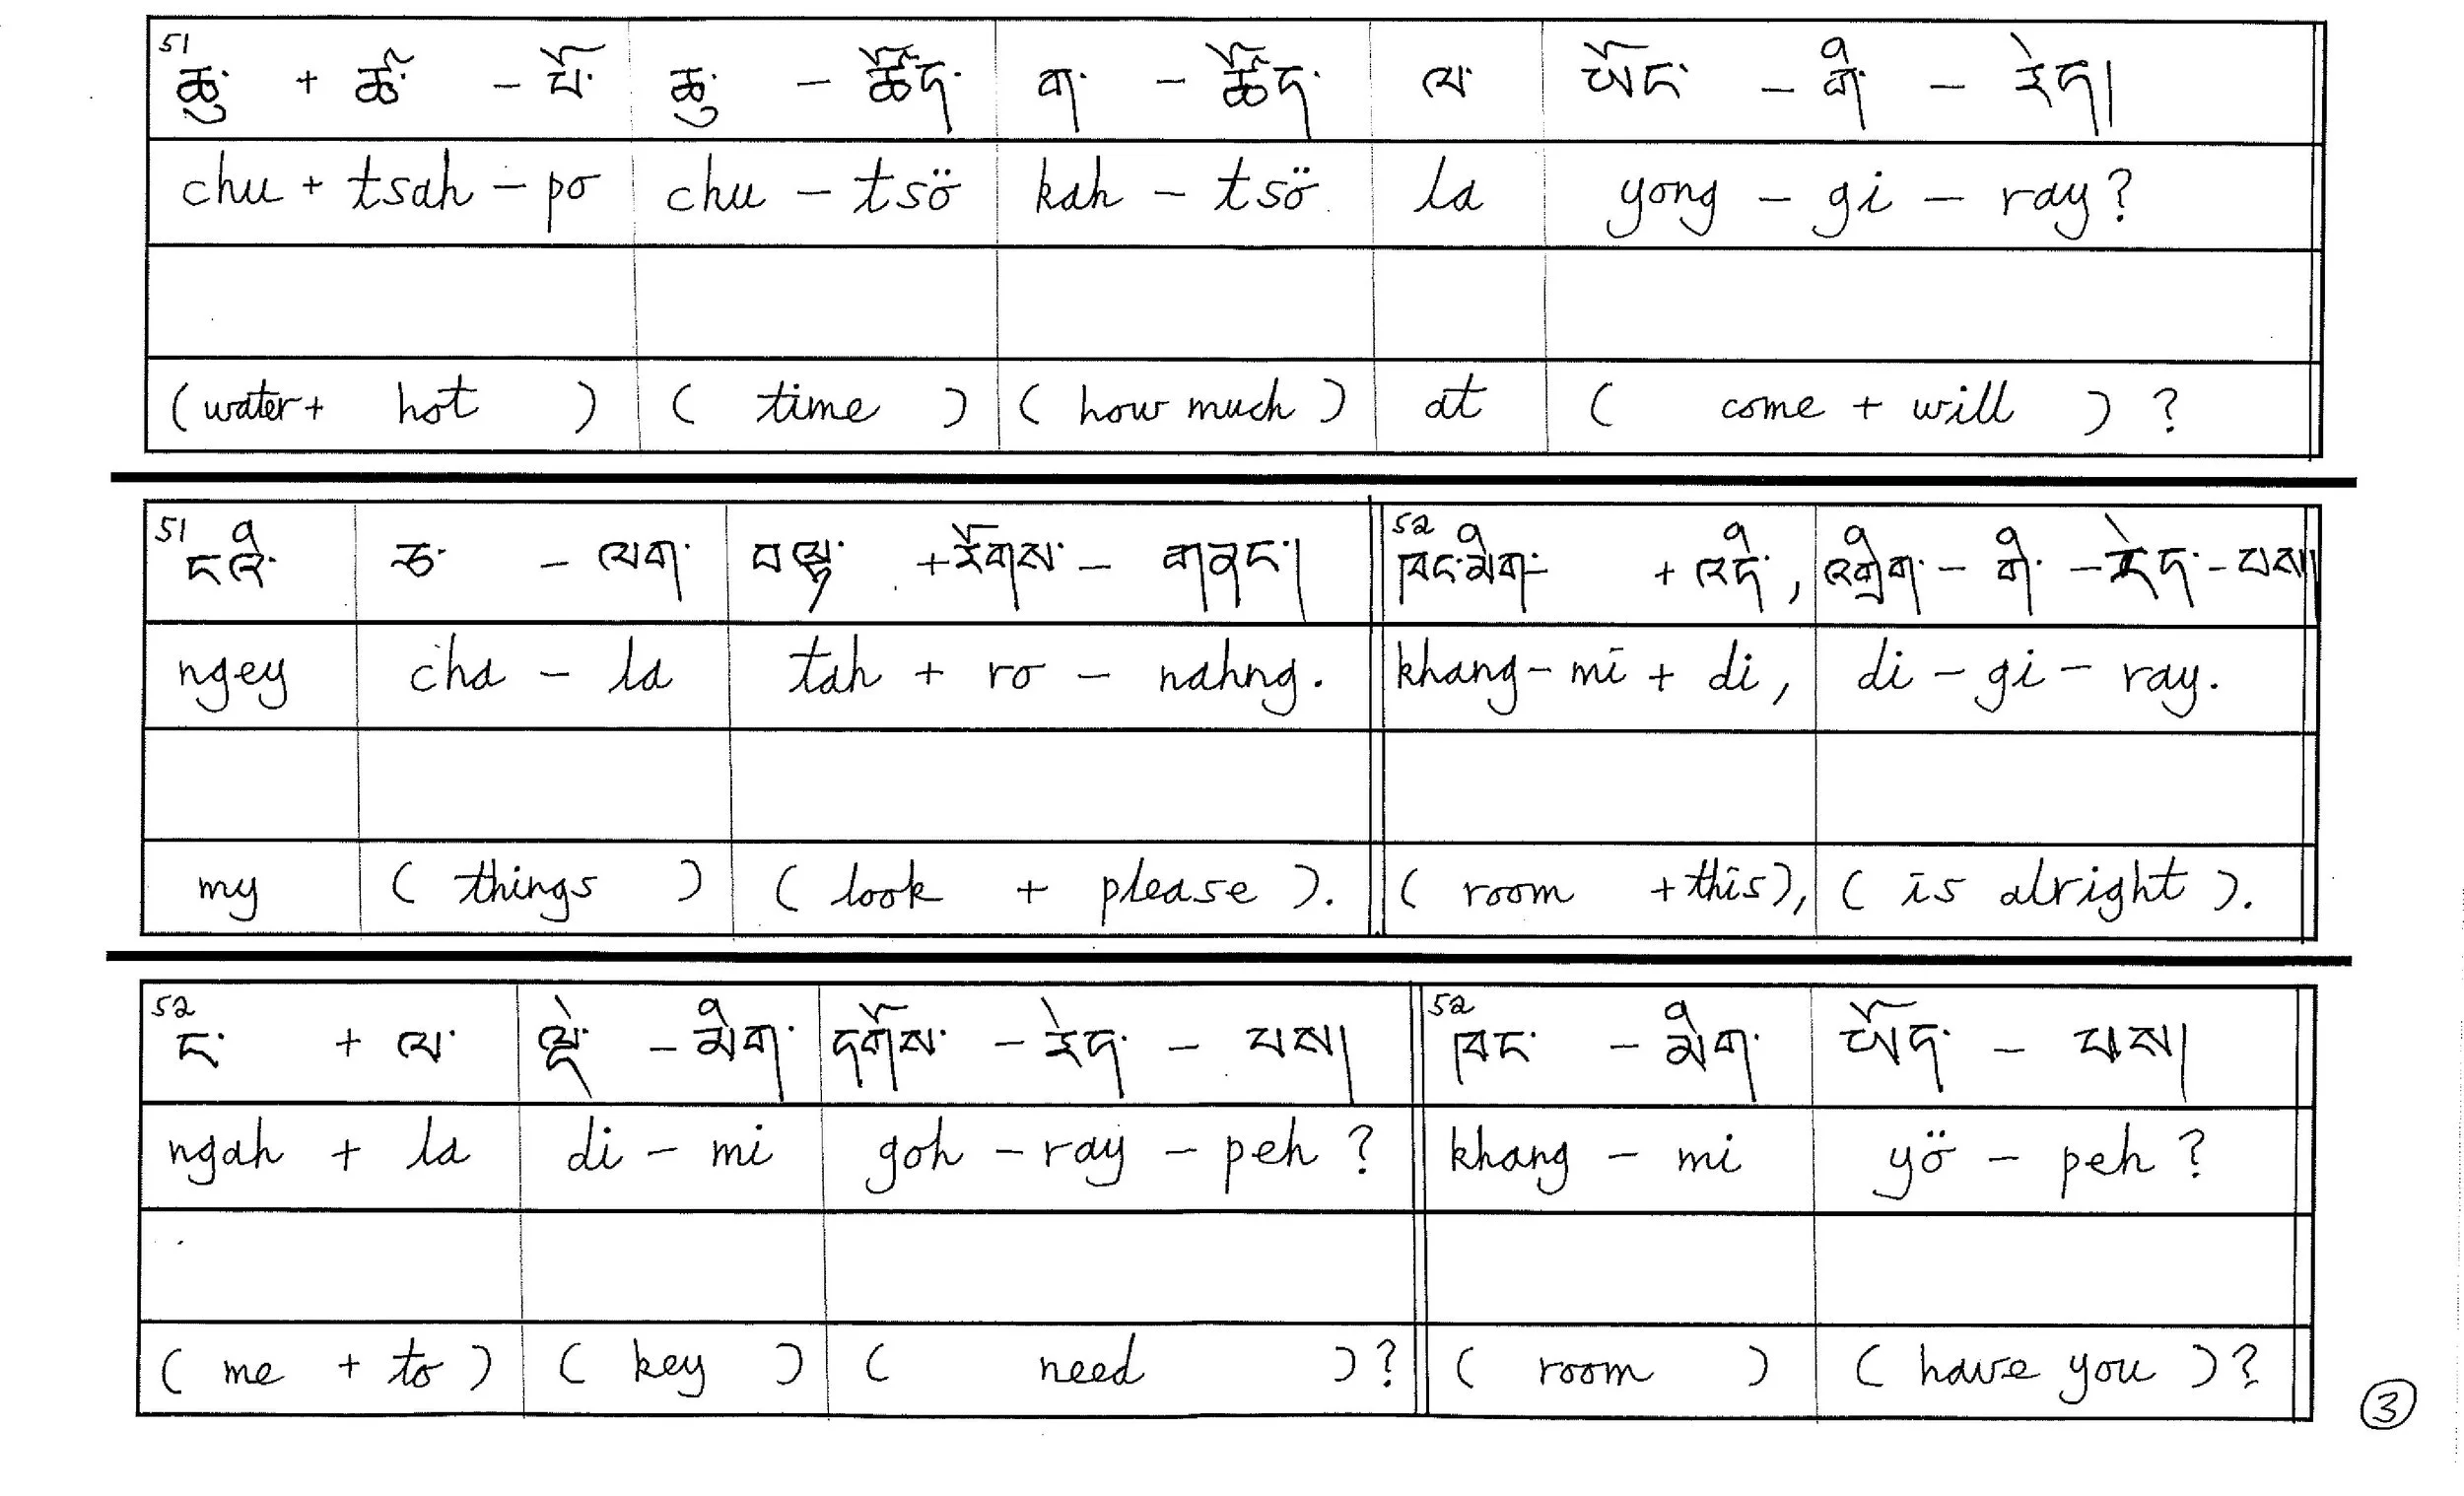 51
ཆུ་ + ཚ་ - པོ་ ཆུ་ - ཚོད་ ག་ - ཚོད་ ལ་ ཡོང་ - གི་ - རེད།
chu + tsah - po chu - tsö kah - tsö la yong - gi - ray?
(water + hot ) ( time ) ( how much ) at ( come + will ) ?
51 52
ངའི་ ཅ་ - ལག་ བལྟ་ + རོགས་ - གནང་། ཁང་མིག་ - + འདི་, འགྲིག་ - གི་ - རེད་ - པས།
ngey cha - la tah + ro - nahng. khang - mi + di, di - gi - ray.
my ( things ) ( look + please ). ( room + this), ( is alright ).
52 52
ང་ + ལ་ ལྡེ་ - མིག་ དགོས་ - རེད་ - པས། ཁང་ - མིག་ ཡོད་ - པས།
ngah + la di - mi goh - ray - peh ? khang - mi yö - peh ?
( me + to ) ( key ) ( need )? ( room ) ( have you )?
3